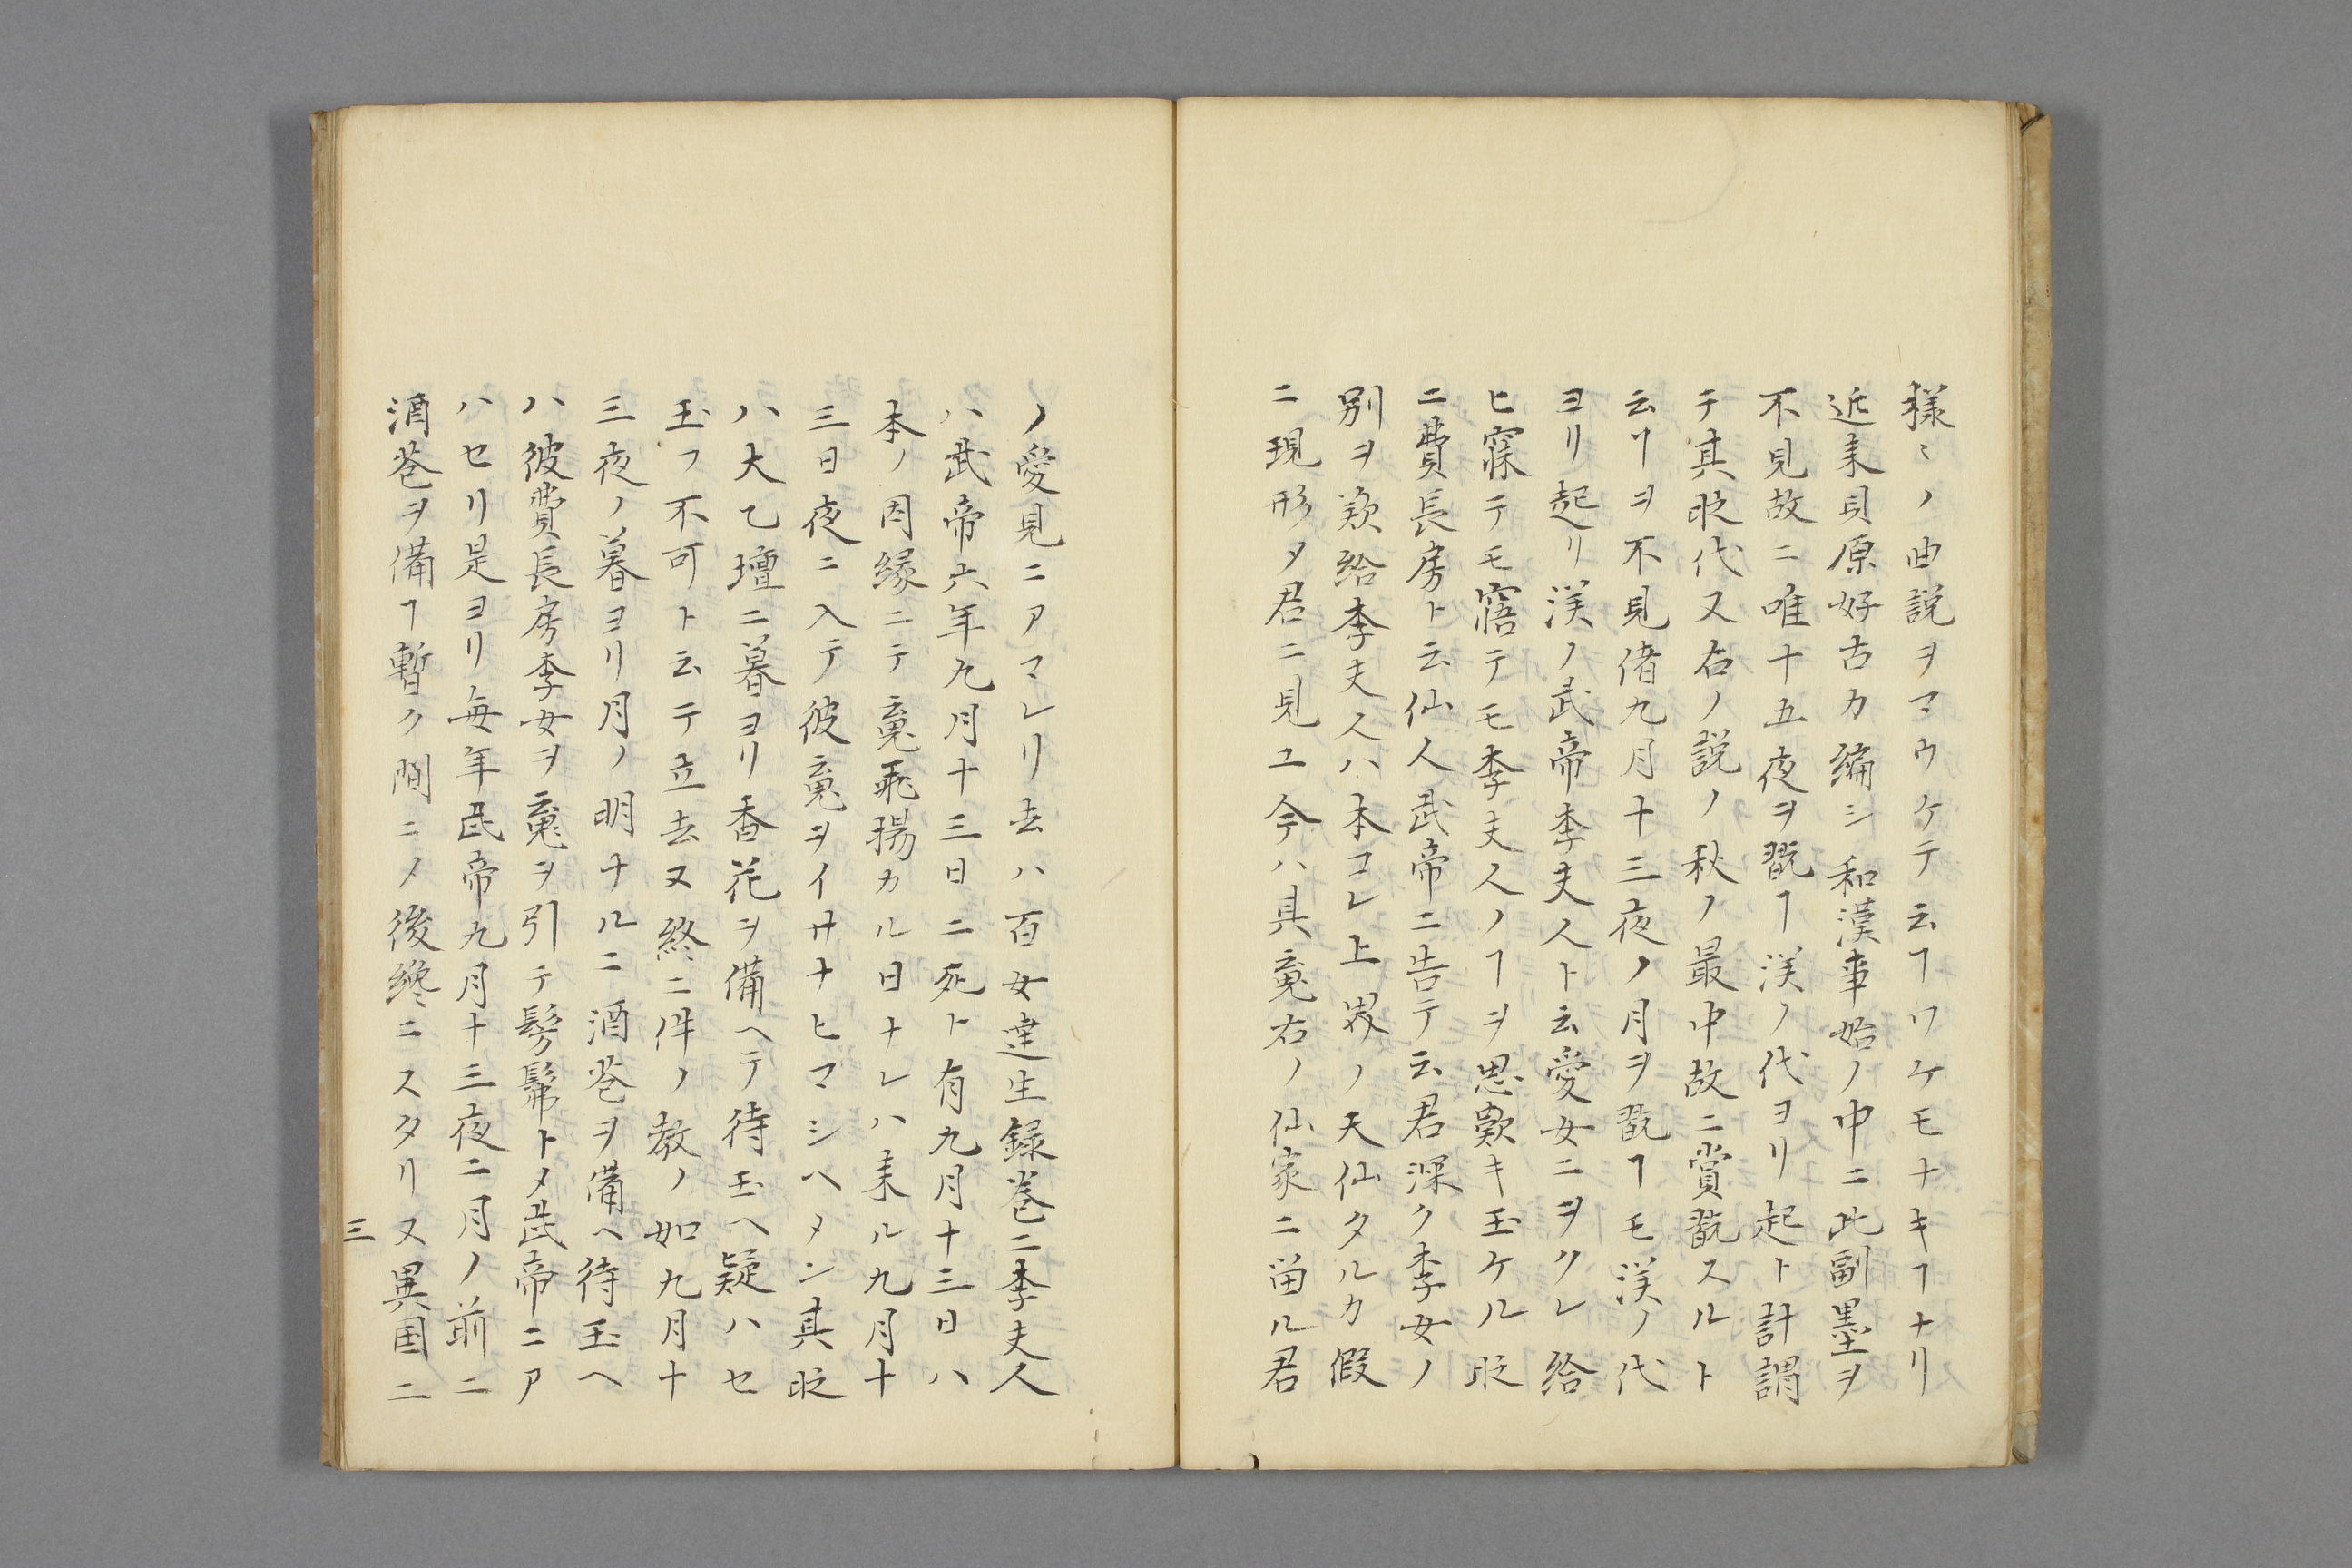 様〻ノ曲説ヲマウケテ云ヿワケモナキヿナリ
近来貝原好古カ編シ和漢事始ノ中ニ此副墨ヲ
不見故ニ唯十五夜ヲ翫ヿ漢ノ代ヨリ起ト計謂
テ其昄代又右ノ説ノ秋ノ最中故ニ賞翫スルト
云リヲ不見偖九月十三夜ノ月ヲ翫ヿモ漢ノ代
ヨリ起リ漢ノ武帝李夫人ト云愛女ニヲクレ給
ヒ寐テモ寤テモ李夫人ノヿヲ思歎キ玉ケル昄
ニ費長房ト云仙人武帝ニ告テ云君深ク李女ノ
別ヲ歎給李夫人ハ本コレ上界ノ天仙タルカ假
ニ現形〆君ニ見ユ今ハ具䰟右ノ仙家ニ畄ル君
ノ愛見ニアマレリ去ハ百女達生録巻ニ李夫人
ハ武帝六年九月十三日ニ死ト有九月十三日ハ
本ノ因縁ニテ䰟飛揚カル日ナレハ来ル九月十
三日夜ニ入テ彼䰟ヲイサナヒマシヘメン其昄
ハ大乙壇ニ暮ヨリ香花ヲ備ヘテ待玉ヘ疑ハセ
玉フ不可ト云テ立去又終ニ件ノ教ノ如九月十
三夜ノ暮ヨリ月ノ明ナルニ酒肴ヲ備ヘ待玉ヘ
ハ彼費長房李女ヲ䰟ヲ引テ髣髴ト〆武帝ニア
ハセリ是ヨリ毎年武帝九月十三夜ニ月ノ前ニ
酒肴ヲ備ヿ暫ク間ニ〆後纔ニスタリ又異国ニ
三